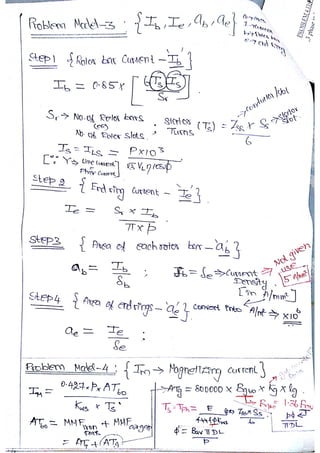 Problem Model-3 : { Ib, Ie, ab, ae }
Step1 { Rotor bar Current - 'Ib' }
Ib = 0.85 × [ 6 Ts Is / Sr ]
Sr → No. of Rotor bars (or) No of Rotor slots.
; stator Turns (Ts) = Zss × Ss / 6
→ conductor/slot
→ stator slot
Is = ILs = P×10³ / √3 VL η cosφ
[∵ Y → Line current = Phase current]
Step 2 { End ring current - 'Ie' }
Ie = Sr × Ib / π × p
Step3 { Area of each rotor bar - 'ab' }
ab = Ib / δb ; δb = δe ⇒ Current Density [in A/mm²]
⇒ Not given use 5 A/mm²
Step4 { Area of end rings - 'ae' } convert into A/m² → ×10⁶
ae = Ie / δe ;
Problem Model-4 : { Im → Magnetizing current }
Im = 0.427 · P × AT60 / Kws × Ts
→ ATg = 800000 × Bg60 × Kg × lg
AT60 = MMF iron part + MMF airgap
= ATi + ATg
Ts - Tph = E / 4.44 f φ Kws (or) Zss·Ss / 6
φ = Bav π DL / p
Bg60 = 1.36 Bav